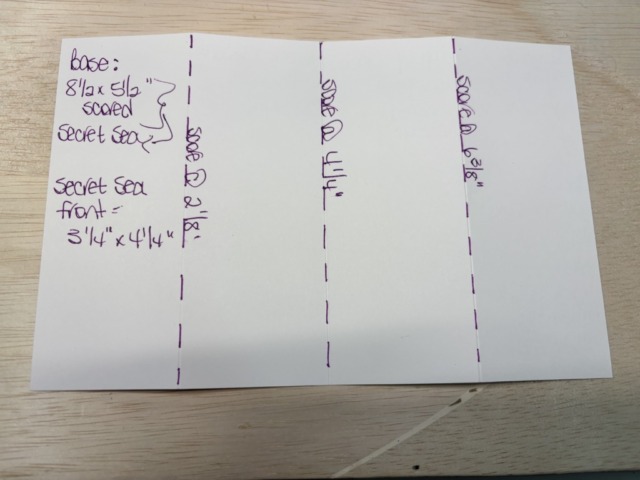 base:
8 1/2 x 5 1/2"
scored
secret sea
secret sea
front =
3 1/4" x 4 1/4"
score @ 2 1/8"
score @ 4 1/4"
score @ 6 3/8"